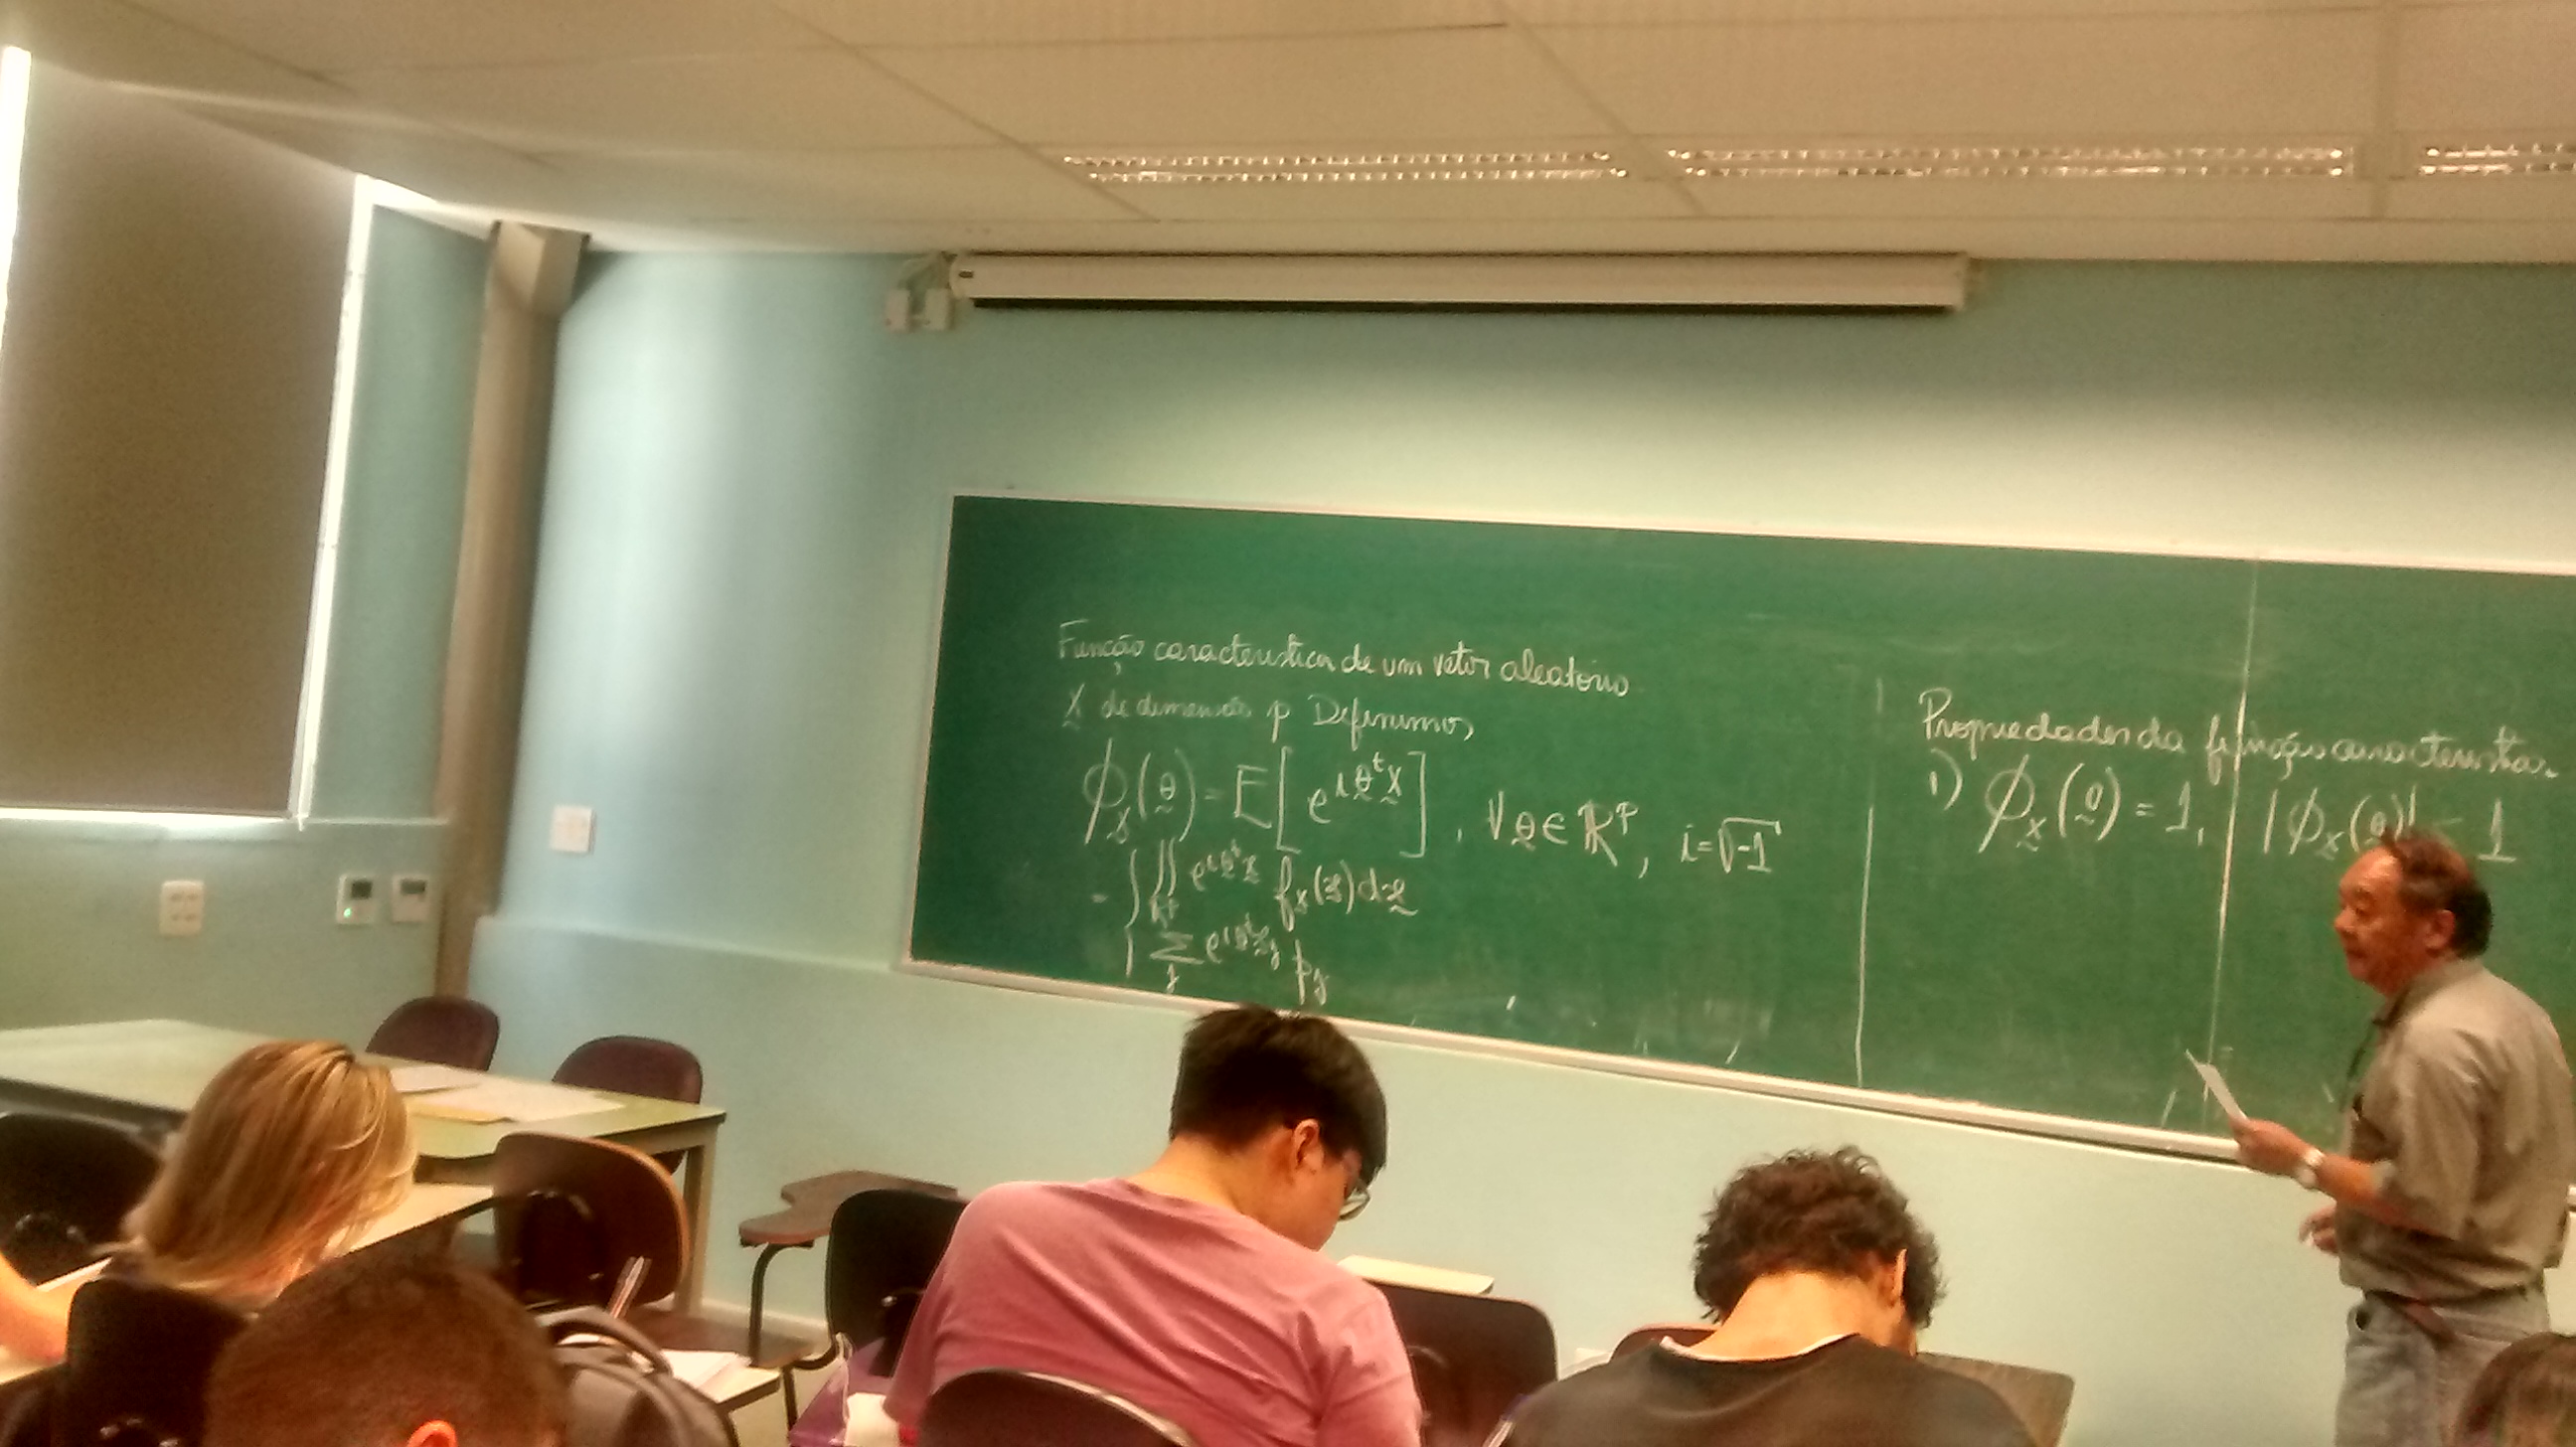 Função característica de um vetor aleatório
X̰ de dimensão p Definimos
ϕ_X̰(θ̰) = E[e^{iθ̰^t X̰}], ∀ θ̰ ∈ ℝ^p, i=√-1
= { ∬_{ℝ^p} e^{iθ̰^t x̰} f_X̰(x̰)dx̰
{ ∑_j e^{iθ̰^t x̰_j} p_j
Propriedades da função característica.
1) ϕ_X̰(0̰) = 1, |ϕ_X̰(θ̰)| 1